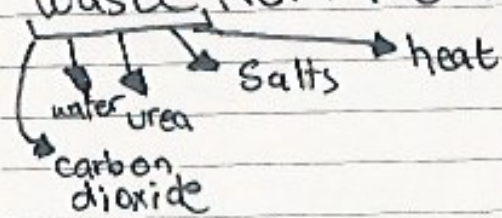 waste
heat
salts
water urea
carbon
dioxide